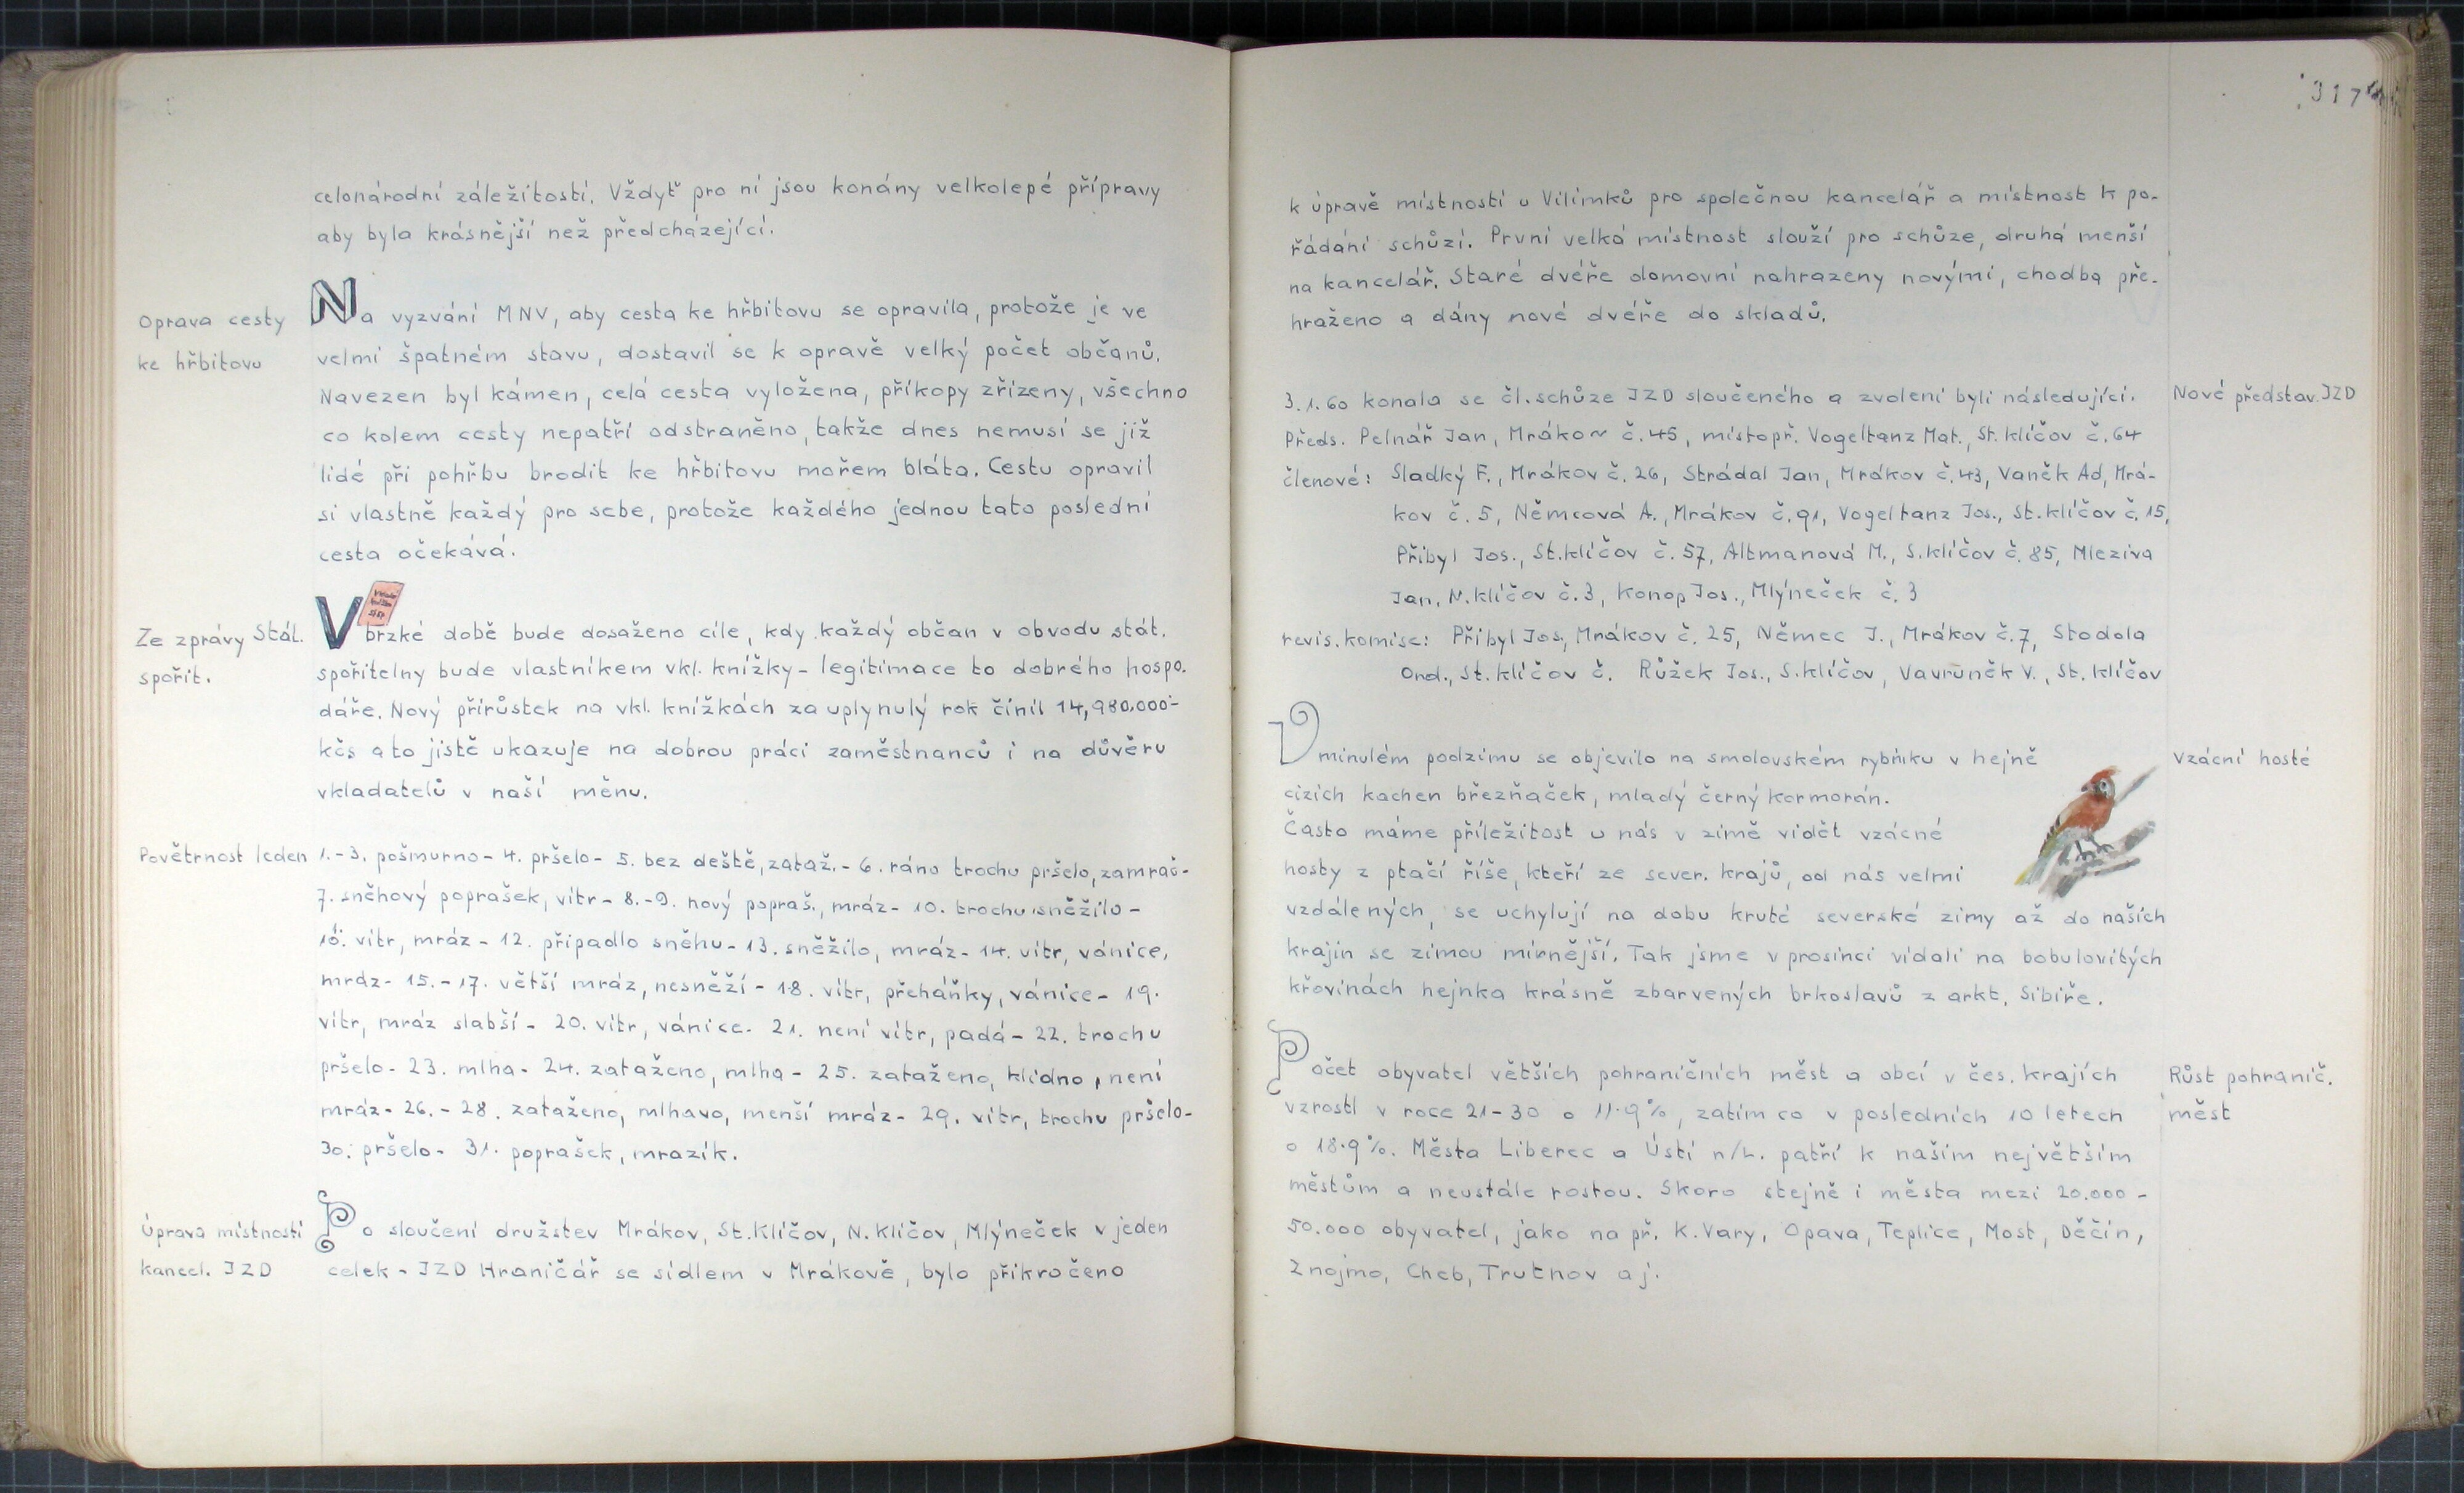 celonárodní záležitostí. Vždyť pro ní jsou konány velkolepé přípravy
aby byla krásnější než předcházející.
Oprava cesty
ke hřbitovu
Na vyzvání MNV, aby cesta ke hřbitovu se opravila, protože je ve
velmi špatném stavu, dostavil se k opravě velký počet občanů.
Navezen byl kámen, celá cesta vyložena, příkopy zřízeny, všechno
co kolem cesty nepatří odstraněno, takže dnes nemusí se již
lidé při pohřbu brodit ke hřbitovu mořem bláta. Cestu opravil
si vlastně každý pro sebe, protože každého jednou tato poslední
cesta očekává.
Ze zprávy Stát.
spořit.
V brzké době bude dosaženo cíle, kdy každý občan v obvodu stát.
spořitelny bude vlastníkem vkl. knížky - legitimace to dobrého hospo-
dáře. Nový přírůstek na vkl. knížkách za uplynulý rok činil 14,980.000-
kčs a to jistě ukazuje na dobrou práci zaměstnanců i na důvěru
vkladatelů v naší měnu.
Povětrnost leden
1.-3. pošmurno - 4. pršelo - 5. bez deště, zataž. - 6. ráno trochu pršelo, zamrač-
7. sněhový poprašek, vítr - 8.-9. nový popraš., mráz - 10. trochu sněžilo -
10. vítr, mráz - 12. připadlo sněhu - 13. sněžilo, mráz - 14. vítr, vánice,
mráz - 15. - 17. větší mráz, nesněží - 18. vítr, přeháňky, vánice - 19.
vítr, mráz slabší - 20. vítr, vánice. 21. není vítr, padá - 22. trochu
pršelo - 23. mlha - 24. zataženo, mlha - 25. zataženo, klidno, není
mráz - 26. - 28. zataženo, mlhavo, menší mráz - 29. vítr, trochu pršelo-
30. pršelo - 31. poprašek, mrazík.
Úprava místností
kancel. JZD
Po sloučení družstev Mrákov, St. Klíčov, N. Klíčov, Mlýneček v jeden
celek - JZD Hraničář se sídlem v Mrákově, bylo přikročeno
317
k úpravě místností u Vilímků pro společnou kancelář a místnost k po-
řádání schůzí. První velká místnost slouží pro schůze, druhá menší
na kancelář. Staré dvéře domovní nahrazeny novými, chodba pře-
hraženo a dány nové dvéře do skladů.
3.1.60 konala se čl. schůze JZD sloučeného a zvoleni byli následující.
Nové představ. JZD
Předs. Pelnář Jan, Mrákov č. 45, místopř. Vogeltanz Mat., St. klíčov č. 64
členové: Sladký F., Mrákov č. 26, Strádal Jan, Mrákov č. 43, Vaněk Ad, Mrá-
kov č. 5, Němcová A., Mrákov č. 91, Vogeltanz Jos., St. klíčov č. 15,
Přibyl Jos., St. klíčov č. 57, Altmanová M., S. klíčov č. 85, Mleziva
Jan, N. klíčov č. 3, Konop Jos., Mlýneček č. 3
revis. komise: Přibyl Jos, Mrákov č. 25, Němec J., Mrákov č. 7, Stodola
Ond., St. klíčov č. Růžek Jos., S. klíčov, Vavruněk V., St. klíčov
V minulém podzimu se objevilo na smolovském rybníku v hejně
Vzácní hosté
cizích kachen březňaček, mladý černý kormorán.
Často máme příležitost u nás v zimě vidět vzácné
hosty z ptačí říše, kteří ze sever. krajů, od nás velmi
vzdálených, se uchylují na dobu kruté severské zimy až do našich
krajin se zimou mírnější. Tak jsme v prosinci vídali na bobulovitých
křovinách hejnka krásně zbarvených brkoslavů z arkt. Sibiře.
Počet obyvatel větších pohraničních měst a obcí v čes. krajích
Růst pohranič.
měst
vzrostl v roce 21-30 o 11·9%, zatím co v posledních 10 letech
o 18·9%. Města Liberec a Ústí n/L. patří k našim největším
městům a neustále rostou. Skoro stejně i města mezi 20.000 -
50.000 obyvatel, jako na př. K. Vary, Opava, Teplice, Most, Děčín,
Znojmo, Cheb, Trutnov aj.